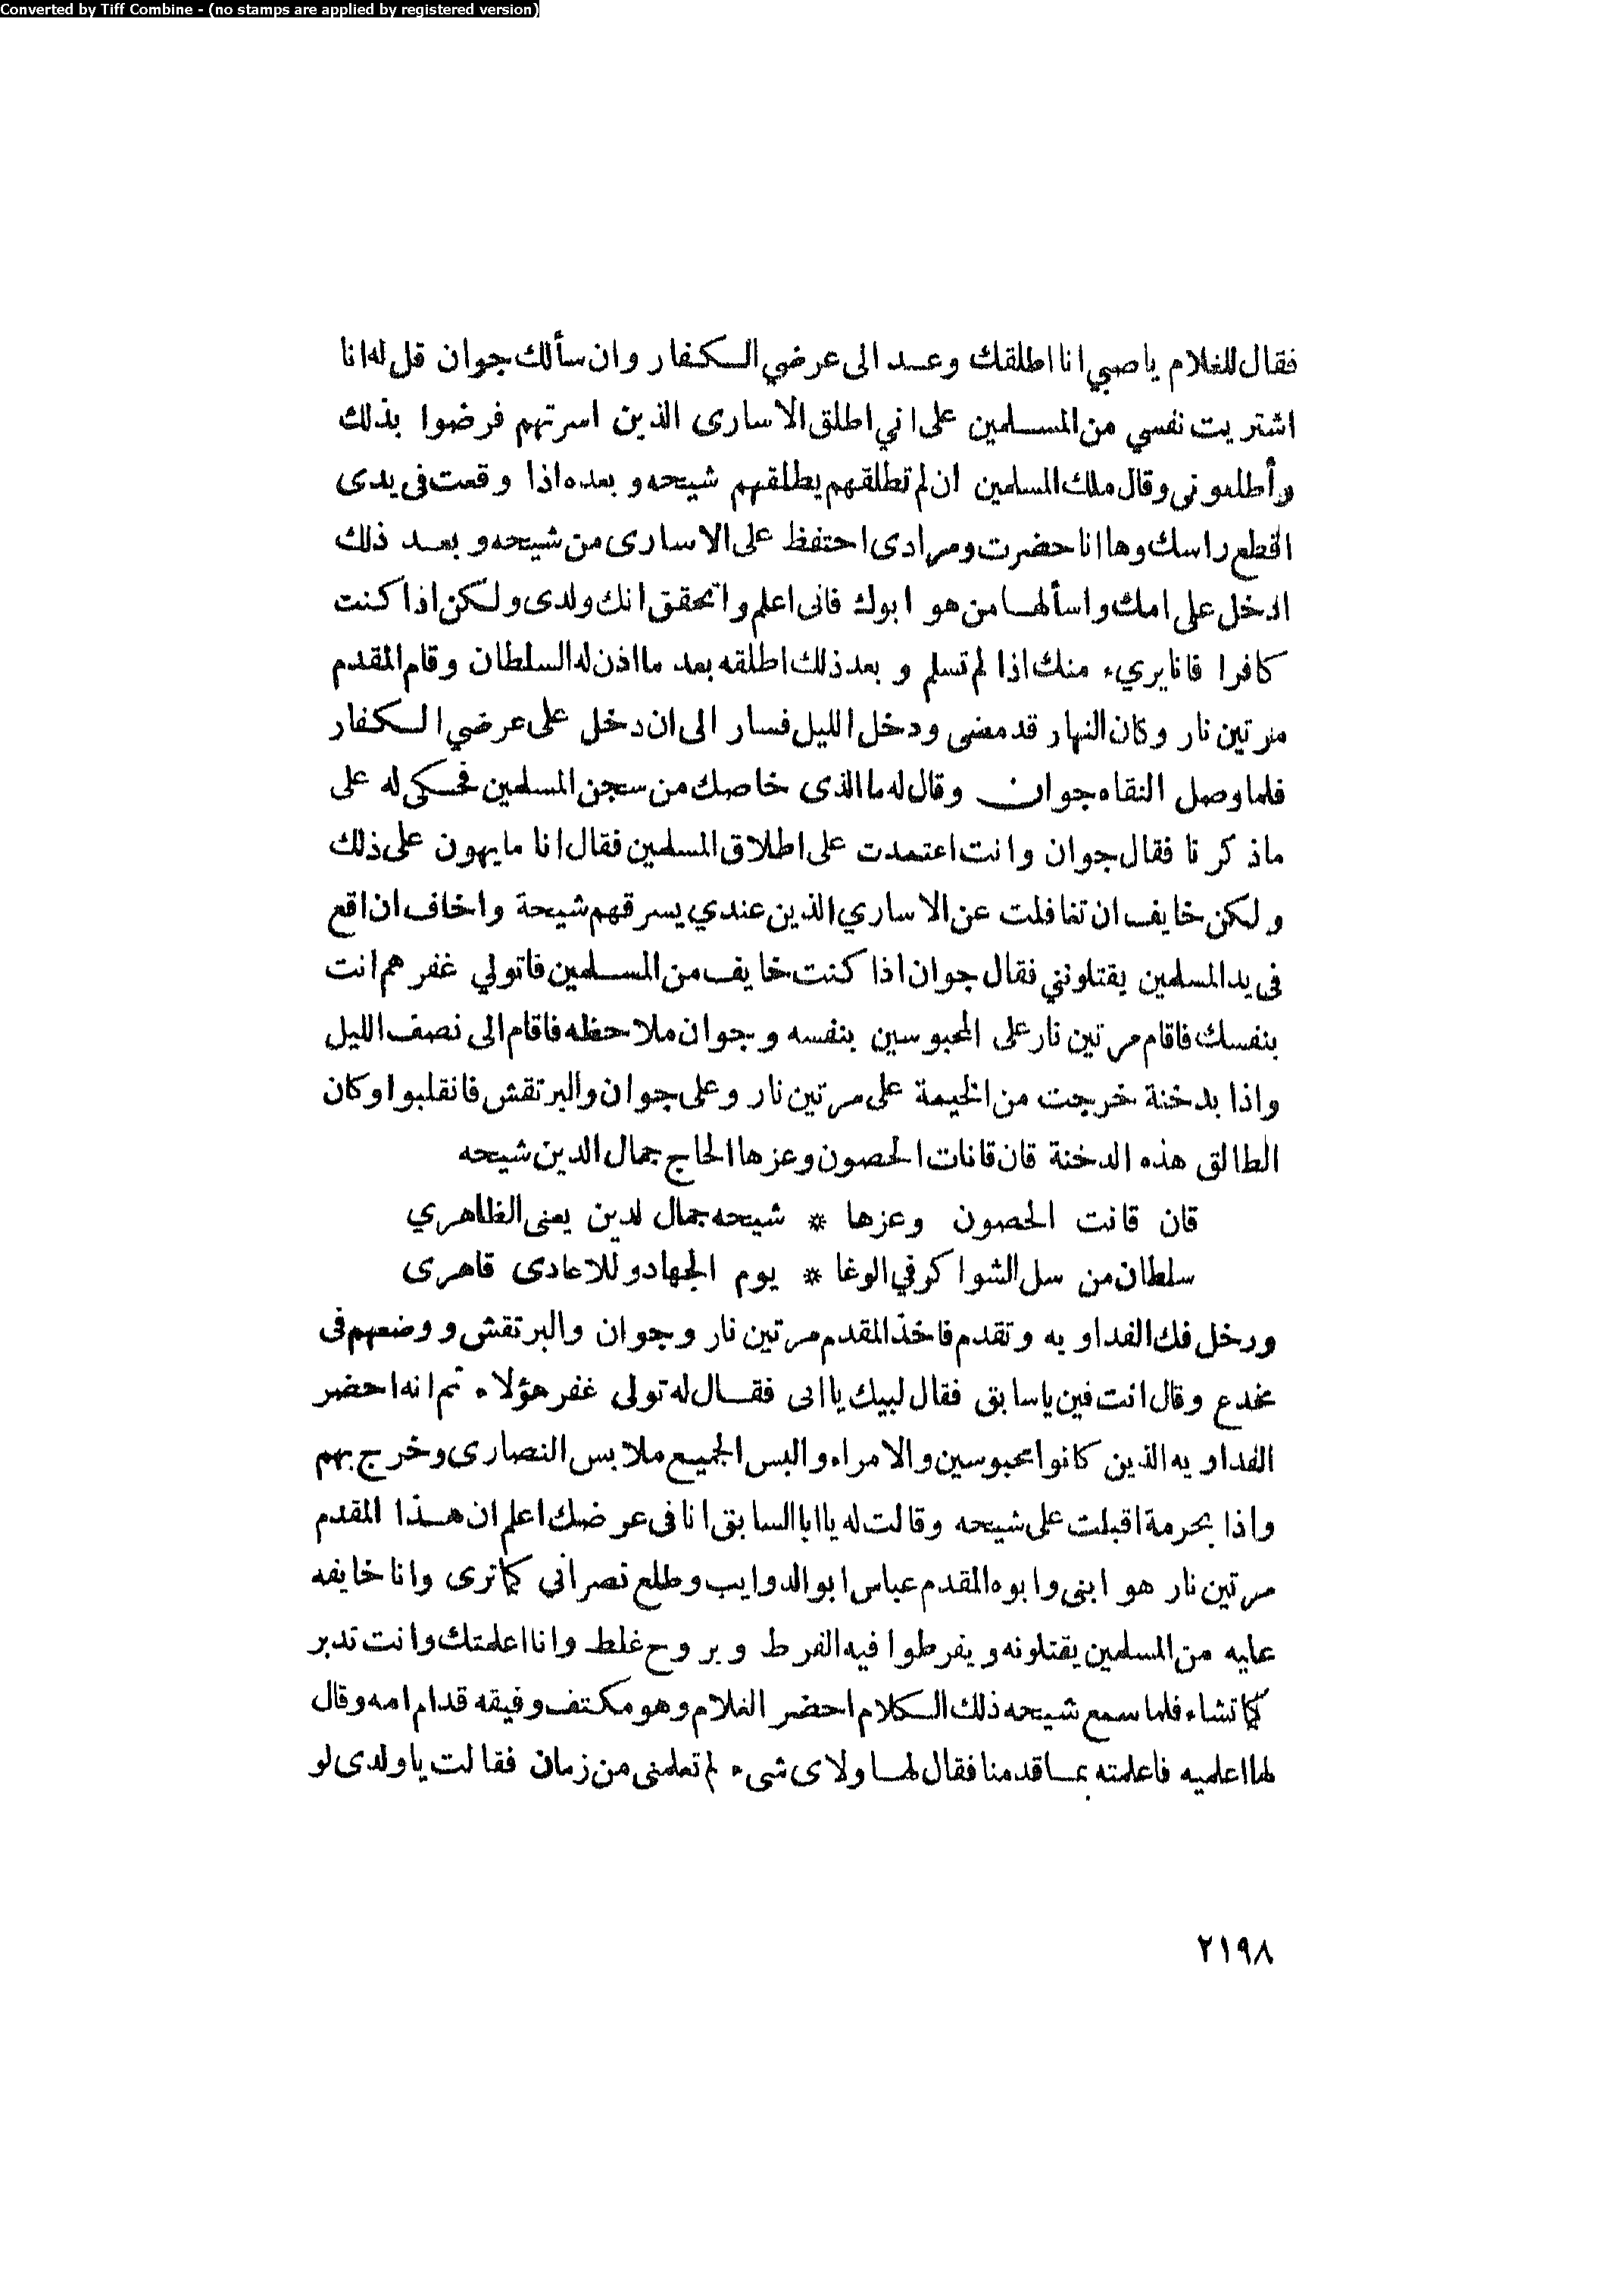 Converted by Tiff Combine - (no stamps are applied by registered version)
فقال للغلام ياصبي انا اطلقك وعد الى عرضي الكفار وان سألك جوان قل له انا
اشتريت نفسي من المسلمين على اني اطلق الاسارى الذين اسرتهم فرضوا بذلك
وأطلعونى وقال ملك المسلمين ان لم تطلقهم يطلقهم شيحه وبعده اذا وقعت فى يدى
اقطع راسك وها انا حضرت ومرادى احتفظ على الاسارى من شيحه وبعد ذلك
ادخل على امك واسألها من هو ابوك فانى اعلم واتحقق انك ولدى ولكن اذا كنت
كافرا قانا يريء منك اذا لم تسلم و بعد ذلك اطلقه بعد ما اذن له السلطان وقام المقدم
مرتين نار وكان النهار قد مضى ودخل الليل فسار الى ان دخل على عرضي الكفار
فلما وصل التقاه جوان وقال له ما الذى خاصك من سجن المسلمين فحكى له على
ماذكرنا فقال جوان وانت اعتمدت على اطلاق المسلمين فقال انا مايهون على ذلك
ولكن خايف ان تغافلت عن الاساري الذين عندي يسرقهم شيحة واخاف ان اقع
فى يد المسلمين يقتلونني فقال جوان اذا كنت خايف من المسلمين فاتولي غفرهم انت
بنفسك فاقام مرتين نار على المحبوسين بنفسه وجوان ملاحظه فاقام الى نصف الليل
واذا بدخنة خرجت من الخيمة على مرتين نار وعلى جوان والبرتقش فانقلبوا وكان
الطالق هذه الدخنة قان قانات الحصون وعزها الحاج جمال الدين شيحه
قان قانت الحصون وعزها * شيحه جمال لدين يعنى الظاهري
سلطان من سل الشواكر في الوغا * يوم الجهاد وللاعادى قاهرى
ودخل فك الفداويه وتقدم فاخذ المقدم مرتين نار وجوان والبرتقش ووضعهم فى
مخدع وقال انت فين ياسابق فقال لبيك يا ابى فقال له تولى غفر هؤلاء ثم انه احضر
الفداويه الذين كانوا محبوسين والامراء والبس الجميع ملابس النصارى وخرج بهم
واذا بحرمة اقبلت على شيحه وقالت له يا ابا السابق انا فى عرضك اعلم ان هذا المقدم
مرتين نار هو ابنى وابوه المقدم عباس ابو الدوايب وطلع نصراني كما ترى وانا خايفه
عليه من المسلمين يقتلونه ويفرطوا فيه الفرط ويروح غلط وانا اعلمتك وانت تدبر
كما تشاء فلما سمع شيحه ذلك الكلام احضر الغلام وهو مكتف وفيقه قدام امه وقال
لها اعلميه فاعلمته بما قدمنا فقال لها ولاى شىء لم تعلمنى من زمان فقالت ياولدى لو
٢١٩٨